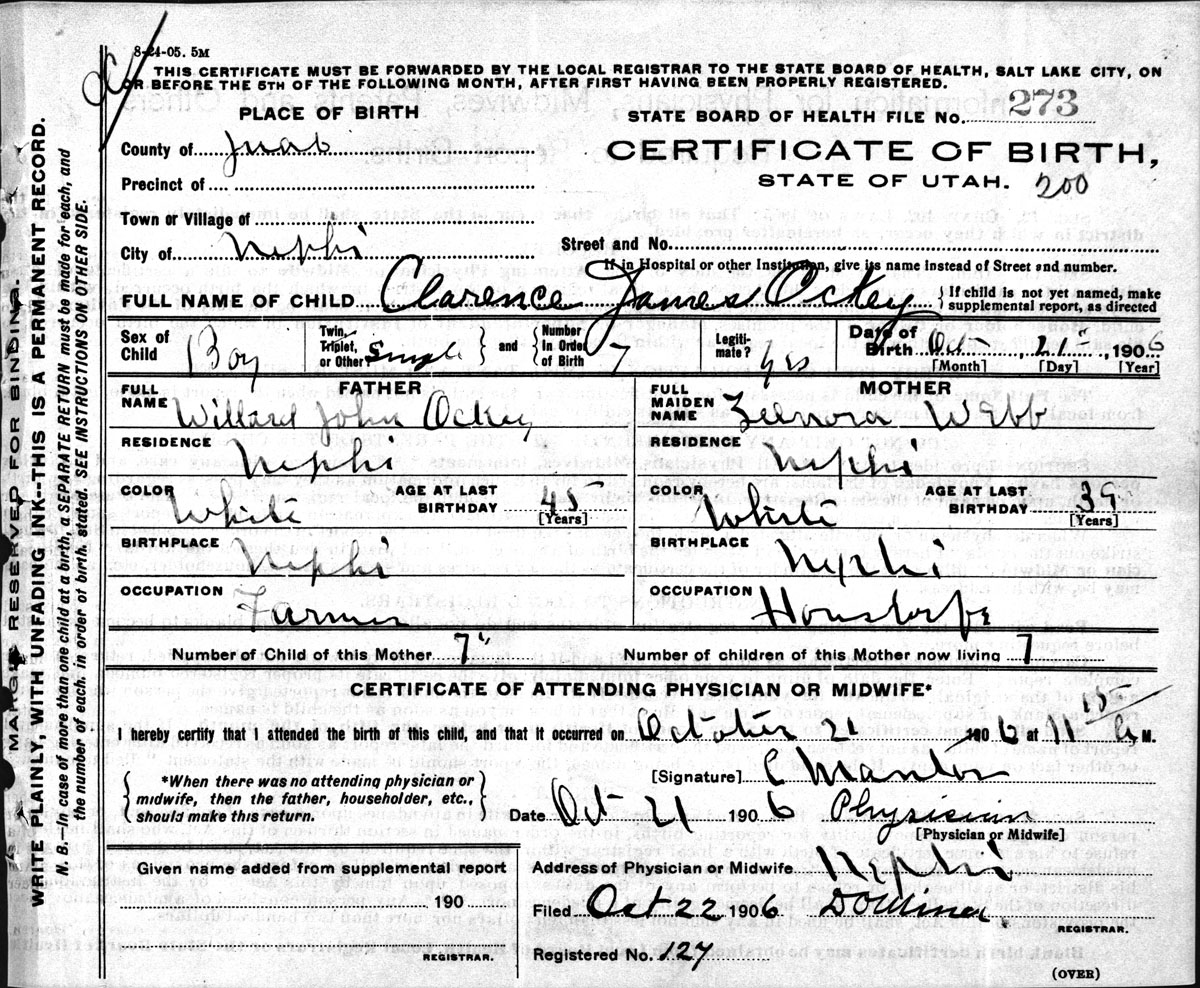 8-24-05. 5M
THIS CERTIFICATE MUST BE FORWARDED BY THE LOCAL REGISTRAR TO THE STATE BOARD OF HEALTH, SALT LAKE CITY, ON
OR BEFORE THE 5TH OF THE FOLLOWING MONTH, AFTER FIRST HAVING BEEN PROPERLY REGISTERED.
MARGIN RESERVED FOR BINDING.
WRITE PLAINLY, WITH UNFADING INK--THIS IS A PERMANENT RECORD.
N. B.--In case of more than one child at a birth, a SEPARATE RETURN must be made for each, and
the number of each, in order of birth, stated. SEE INSTRUCTIONS ON OTHER SIDE.
PLACE OF BIRTH
STATE BOARD OF HEALTH FILE No. 273
County of Juab
CERTIFICATE OF BIRTH,
Precinct of
STATE OF UTAH. 200
Town or Village of
City of Nephi
Street and No.
If in Hospital or other Institution, give its name instead of Street and number.
FULL NAME OF CHILD Clarence James Ockey {If child is not yet named, make
supplemental report, as directed
Sex of Child Boy
Twin, Triplet, or Other? Single
and
Number In Order of Birth 7
Legitimate? yes
Date of Birth Oct 21, 1906
[Month] [Day] [Year]
FATHER
FULL NAME Willard John Ockey
RESIDENCE Nephi
COLOR White
AGE AT LAST BIRTHDAY 45 [Years]
BIRTHPLACE Nephi
OCCUPATION Farmer
MOTHER
FULL MAIDEN NAME Webb
RESIDENCE Nephi
COLOR White
AGE AT LAST BIRTHDAY 39 [Years]
BIRTHPLACE Nephi
OCCUPATION
Number of Child of this Mother 7
Number of children of this Mother now living 7
CERTIFICATE OF ATTENDING PHYSICIAN OR MIDWIFE*
I hereby certify that I attended the birth of this child, and that it occurred on October 21 1906 at 11 15 A M.
{*When there was no attending physician or
midwife, then the father, householder, etc.,
should make this return.}
[Signature]
Date Oct 21 1906 Physician
[Physician or Midwife]
Given name added from supplemental report
190
REGISTRAR.
Address of Physician or Midwife Nephi
Filed Oct 22 1906
REGISTRAR.
Registered No. 127
(OVER)